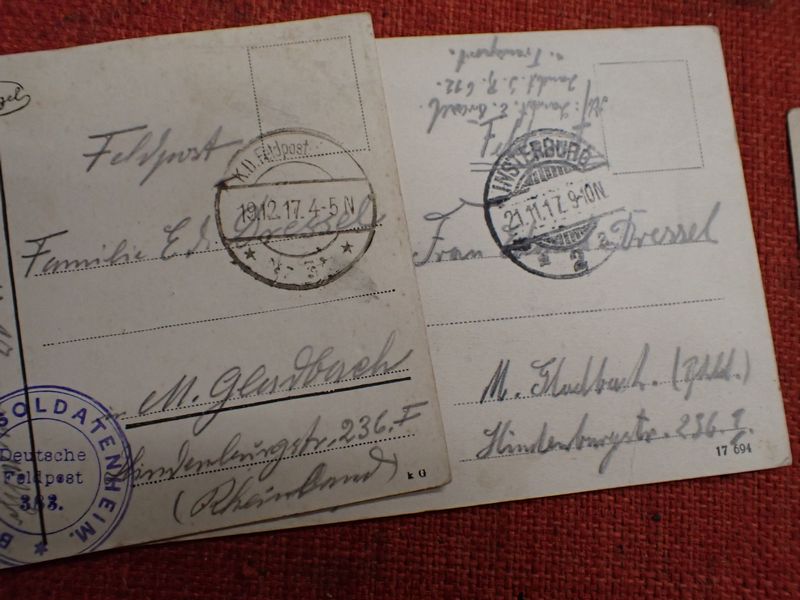 Feldpost
K.D. Feldpost
19.12.17. 4-5 N
Familie E. Dressel
M. Gladbach
Hindenburgstr. 236. I
(Rheinland)
k G
SOLDATENHEIM.
Deutsche
Feldpost
383.
v. Transport.
Landst. I. R. 622.
Abs: Landst. E. Dressel
INSTERBURG
21.11.17. 9-10 N
2 a
Frau Dressel
M. Gladbach. (Rhld.)
Hindenburgstr. 236 I.
17 694